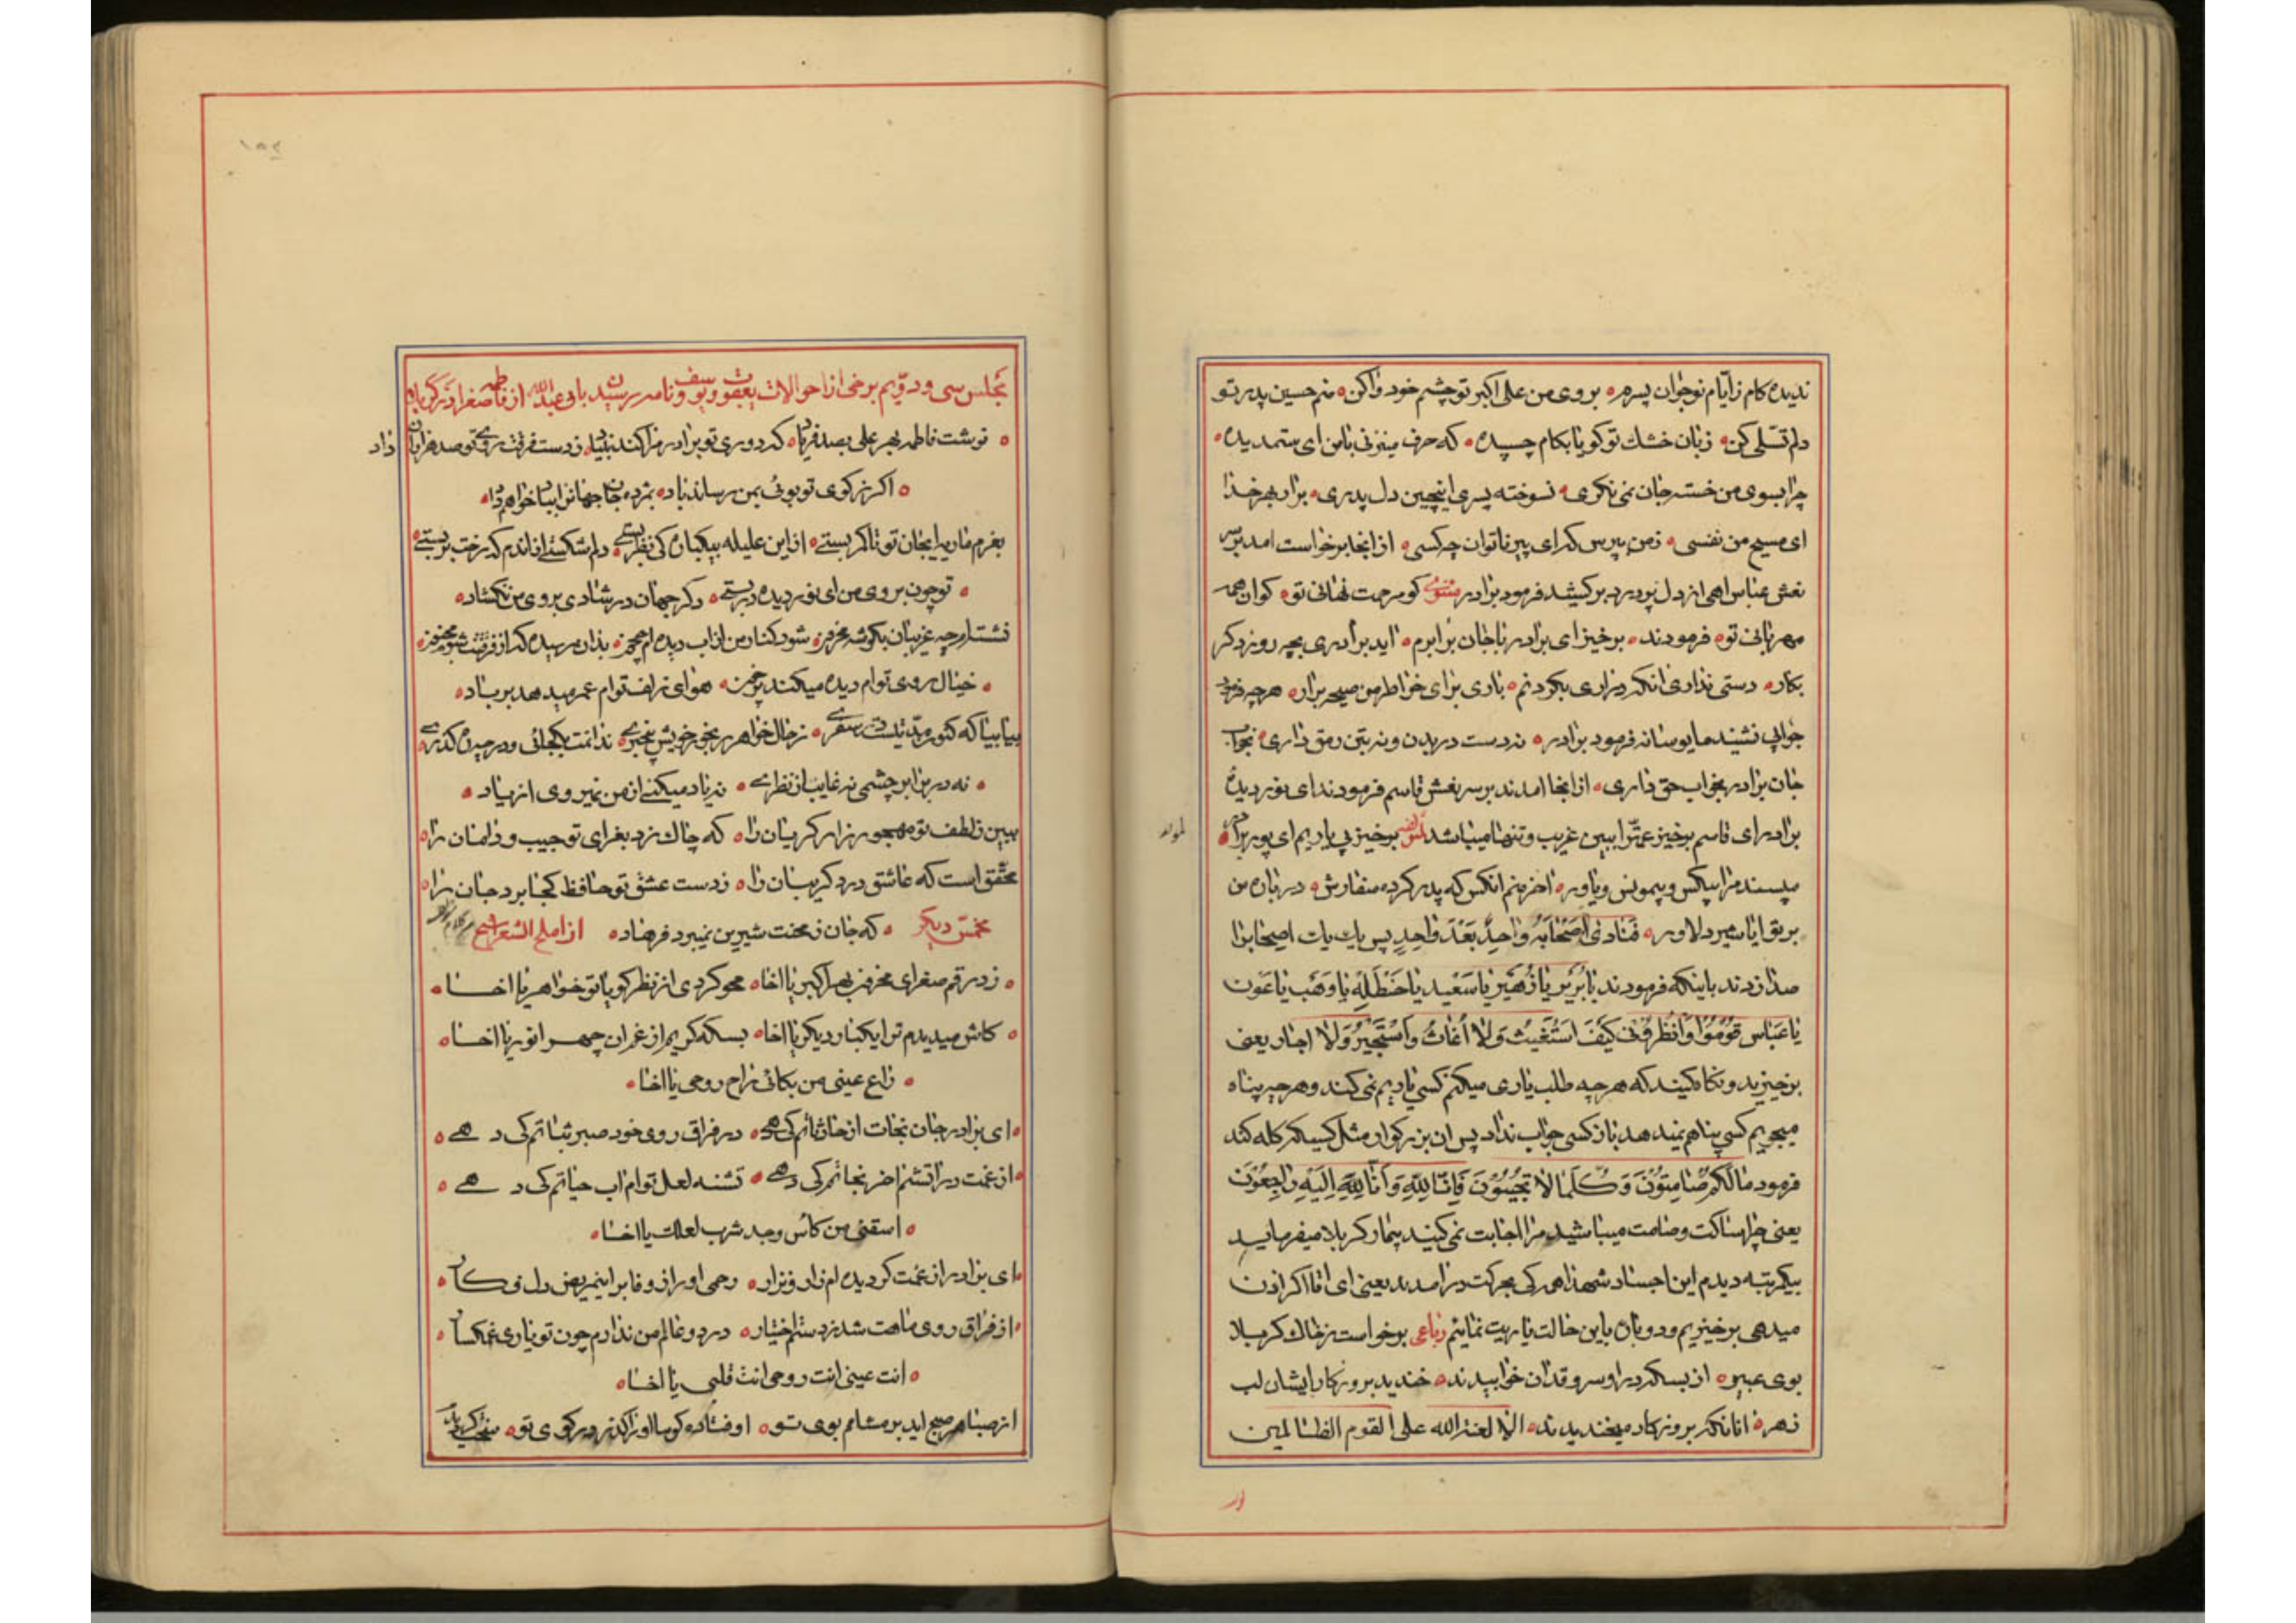 ندیده کام ز ایّام نوجوان پسرم بروی من علی اکبر تو چشم خود واکن منم حسین پدر تو
دلم تسلّی کن زبان خشک تو کویا بکام چسپیده که حرف میزنی با من ای ستمدیده
چرا بسوی من خسته جان نمی نکری نسوخته پسری اینچنین دل پدری برار بهر خدا
ای مسیح من نفسی ز من بپرس که ای پیر ناتوان چه کسی از انجا برخواست امد بر سر
نعش عباس اهی از دل پر درد بر کشید فرمود برادر مثنوی کو مرحمت نهانی تو کو ان همه
مهربانی تو فرمودند برخیز ای برادر با جان برابرم اید برادری بچه روز دکر
بکار دستی نداری انکه در اری بکردنم باری برای خواطر من صیحه برار هر چه فرمود
جوابی نشنید مایوسانه فرمود برادر نه دست در بدن و نه بتن رمق داری بخواب
جان برادر بخواب حق داری از انجا امدند بر سر نعش قاسم فرمودند ای نور دیده
برادر ای قاسم برخیز عمّت را ببین غریب و تنها میباشد برخیز پی یاریم ای پور برادر
مپسند مرا بیکس و بیمونس و یاور اخر منم انکس که پدر کرده سفارش در باره من
بر تو ایا شیر دلاور فنادی اصحابه واحدٍ بعد واحدٍ پس یک یک اصحابرا
صدا زدند باینکه فرمودند یا بریر یا زهیر یا سعید یا حنظله یا وهب یا عون
یا عباس قوموا وانظرونی کیف استغیث ولا أغاث واستجیر ولا اجار یعنی
برخیزید و نکاه کنید که هر چه طلب یاری میکنم کسی یاریم نمی کند و هر چه پناه
میجویم کسی پناهم نمیدهد باز کسی جواب نداد پس ان بزرکوار مثل کسیکه کله کند
فرمود مالکم صامتون وکلما لا تجیبون فانا لله وانا الیه راجعون
یعنی چرا ساکت و صامت میباشید مرا اجابت نمی کنید بیمار کربلا میفرماید
بیکمرتبه دیدم این اجساد شهدا همه کی بحرکت در امدند یعنی ای اقا اکر اذن
میدهی برخیزیم و دوباره باین حالت یاریت نمائیم رباعی برخواست ز خاک کربلا
بوی عبیر از بسکه در او سرو قدان خوابیدند خندید بروزکار ایشان لب
زهر انانکه بروزکار میخندیدند الا لعنة الله علی القوم الظالمین
مجلس سی و دویّم برخی از احوالات یعقوب و یوسف و نامه رسیدن بابی عبدالله از فاطمه صغرا در کربلا
نوشت فاطمه بهر علی بصد فریاد که دوری تو برادر مرا کند بنیاد ز دست فرقت روی تو صد هزاران داد
اکر ز کوی تو بوئی بمن رساند باد بمژده جان جهانرا بباد خواهم داد
بعزم ماریه ایجان تو تا کمر بستی از این علیله بیکباره کی نظر بستی دلم شکستی از اندم که رخت بر بستی
تو چون بروی من ای نور دیده در بستی دکر جهان در شادی بروی من نکشاد
نشسته ام چه غریبان بکوشه محزون شود کنار من از اب دیده ام جیحون بدان رسیده که از فرقتت شوم مجنون
خیال روی توام دیده میکند پر خون هوای زلف توام عمر میدهد بر باد
بیا بیا که کنون مدتیست در سفری ز حال خواهر رنجور خویش بیخبری ندانمت بکجائی و در چه ره کذری
نه در برابر چشمی نه غایب از نظری نه یاد میکنی از من نمیروی از یاد
ببین ز لطف تو مهجور زار کریان را که چاک زد بعزای تو جیب و دامان را
محقق است که عاشق درد کریبان را ز دست عشق تو حافظ کجا برد جان را
مخمّس دیکر که جان ز محنت شیرین نمیبرد فرهاد از املح الشعرا
زد رقم صغرای محزون بهر اکبر یا اخا محو کردی از نظر کویا تو خواهر یا اخا
کاش میدیدم ترا یکبار دیکر یا اخا بسکه کریم از غم ان چهر انور یا اخا
زاع عینی من بکائی راح روحی یا اخا
ای برادر جان نجات از حادثاتم کی دهی در فراق روی خود صبر و ثباتم کی دهی
از غمت در اتشم اخر نجاتم کی دهی تشنه لعل توام اب حیاتم کی دهی
اسقنی من کاس وجد شرب لعلک یا اخا
ای برادر از غمت کردیده ام زار و نزار رحمی اور از وفا بر این مریض دل فکار
از فراق روی ماهت شد ز دستم اختیار در دو عالم من ندارم چون تو یاری غمکسار
انت عینی انت روحی انت قلبی یا اخا
از صبا هر صبح اید بر مشامم بوی تو اوفتاده کوییا او را کذر در کوی تو